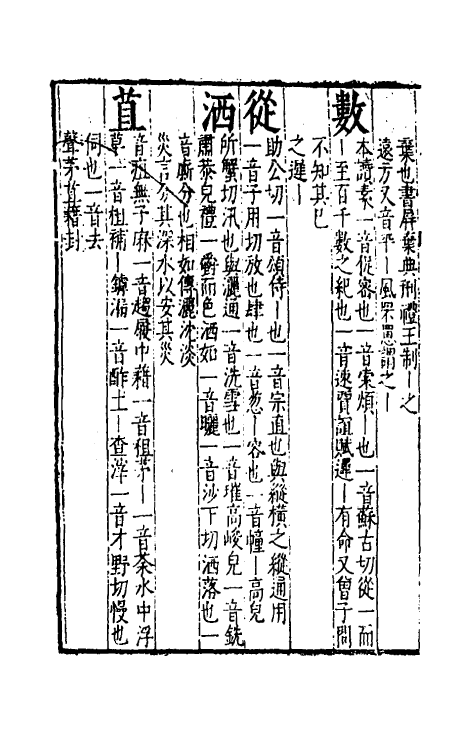 棄也書屏棄典刑禮王制丨之
遠方又音平丨風罘罳謂之丨
數
本讀素一音促密也一音朔煩丨也一音蘇古切從一而
丨至百千數之紀也一音速賈誼賦遲丨有命又曾子問
不知其已
之遲丨
從
助公切一音頌侍丨也一音宗直也與縱橫之縱通用
一音子用切放也肆也一音怱丨容也一音幢丨高皃
洒
所蟹切汛也與灑通一音洗雪也一音璀高峻皃一音銑
肅恭皃禮一爵而色洒如一音曬一音沙下切洒落也一
音嘶分也相如傳灑沈淡
災言分其深水以安其災
苴
音疽無子麻一音趨履中藉一音租茅丨一音槎水中浮
草一音粗補丨鏬漏一音酢土丨查滓一音才野切慢也
伺也一音去
聲茅苴藉封